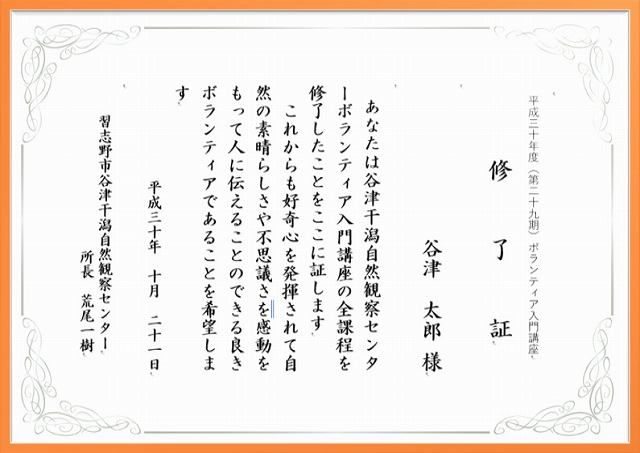 平成三十年度（第二十九期）ボランティア入門講座
修了証
谷津 太郎 様
あなたは谷津干潟自然観察センタ
ーボランティア入門講座の全課程を
修了したことをここに証します
これからも好奇心を発揮されて自
然の素晴らしさや不思議さを感動を
もって人に伝えることのできる良き
ボランティアであることを希望しま
す
平成三十年 十月 二十一日
習志野市谷津干潟自然観察センター
所長 荒尾一樹